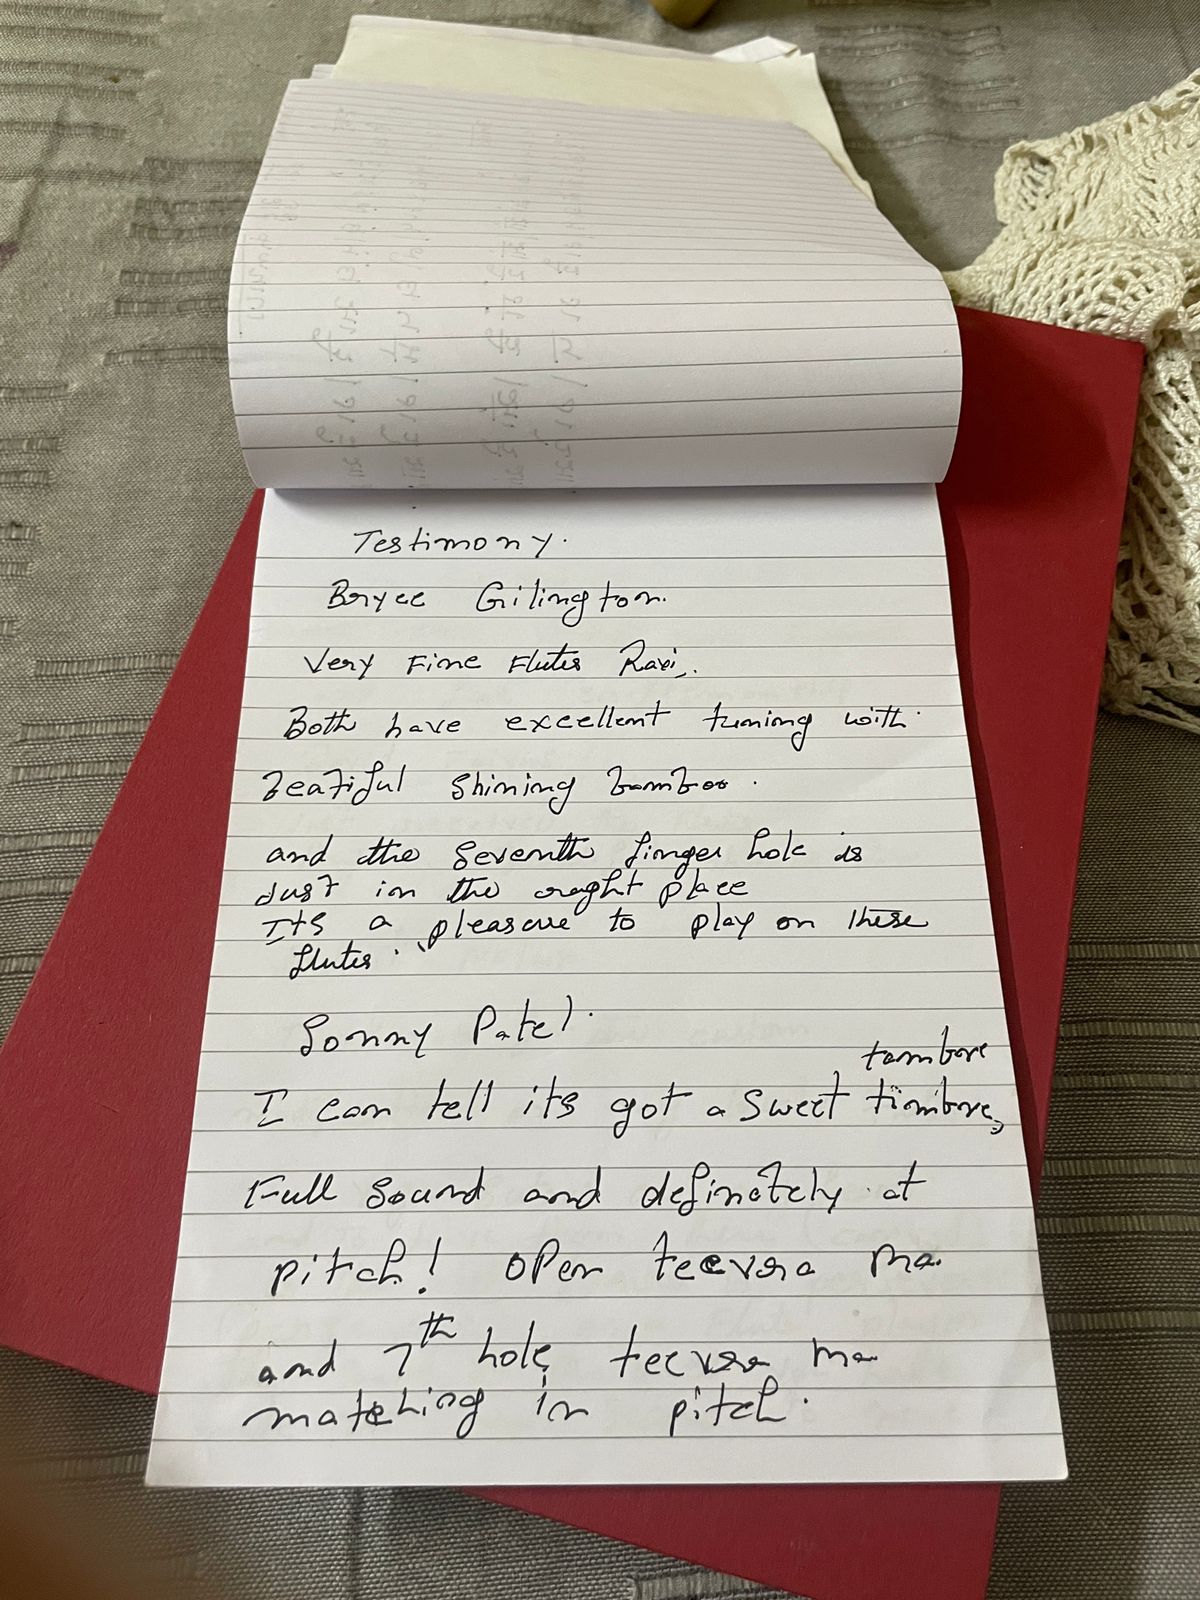 Testimony.
Bryce Gilington.
Very Fine Flutes Ravi,.
Both have excellent tuning with
beatiful shining bamboo.
and the Seventh finger hole is
Just in the raght place
Its a pleasure to play on these
flutes.
Sonny Patel.
tambore
I can tell its got a Sweet timbore,
Full Sound and definately at
pitch! open teevra ma
and 7th hole teevra ma
matching in pitch.